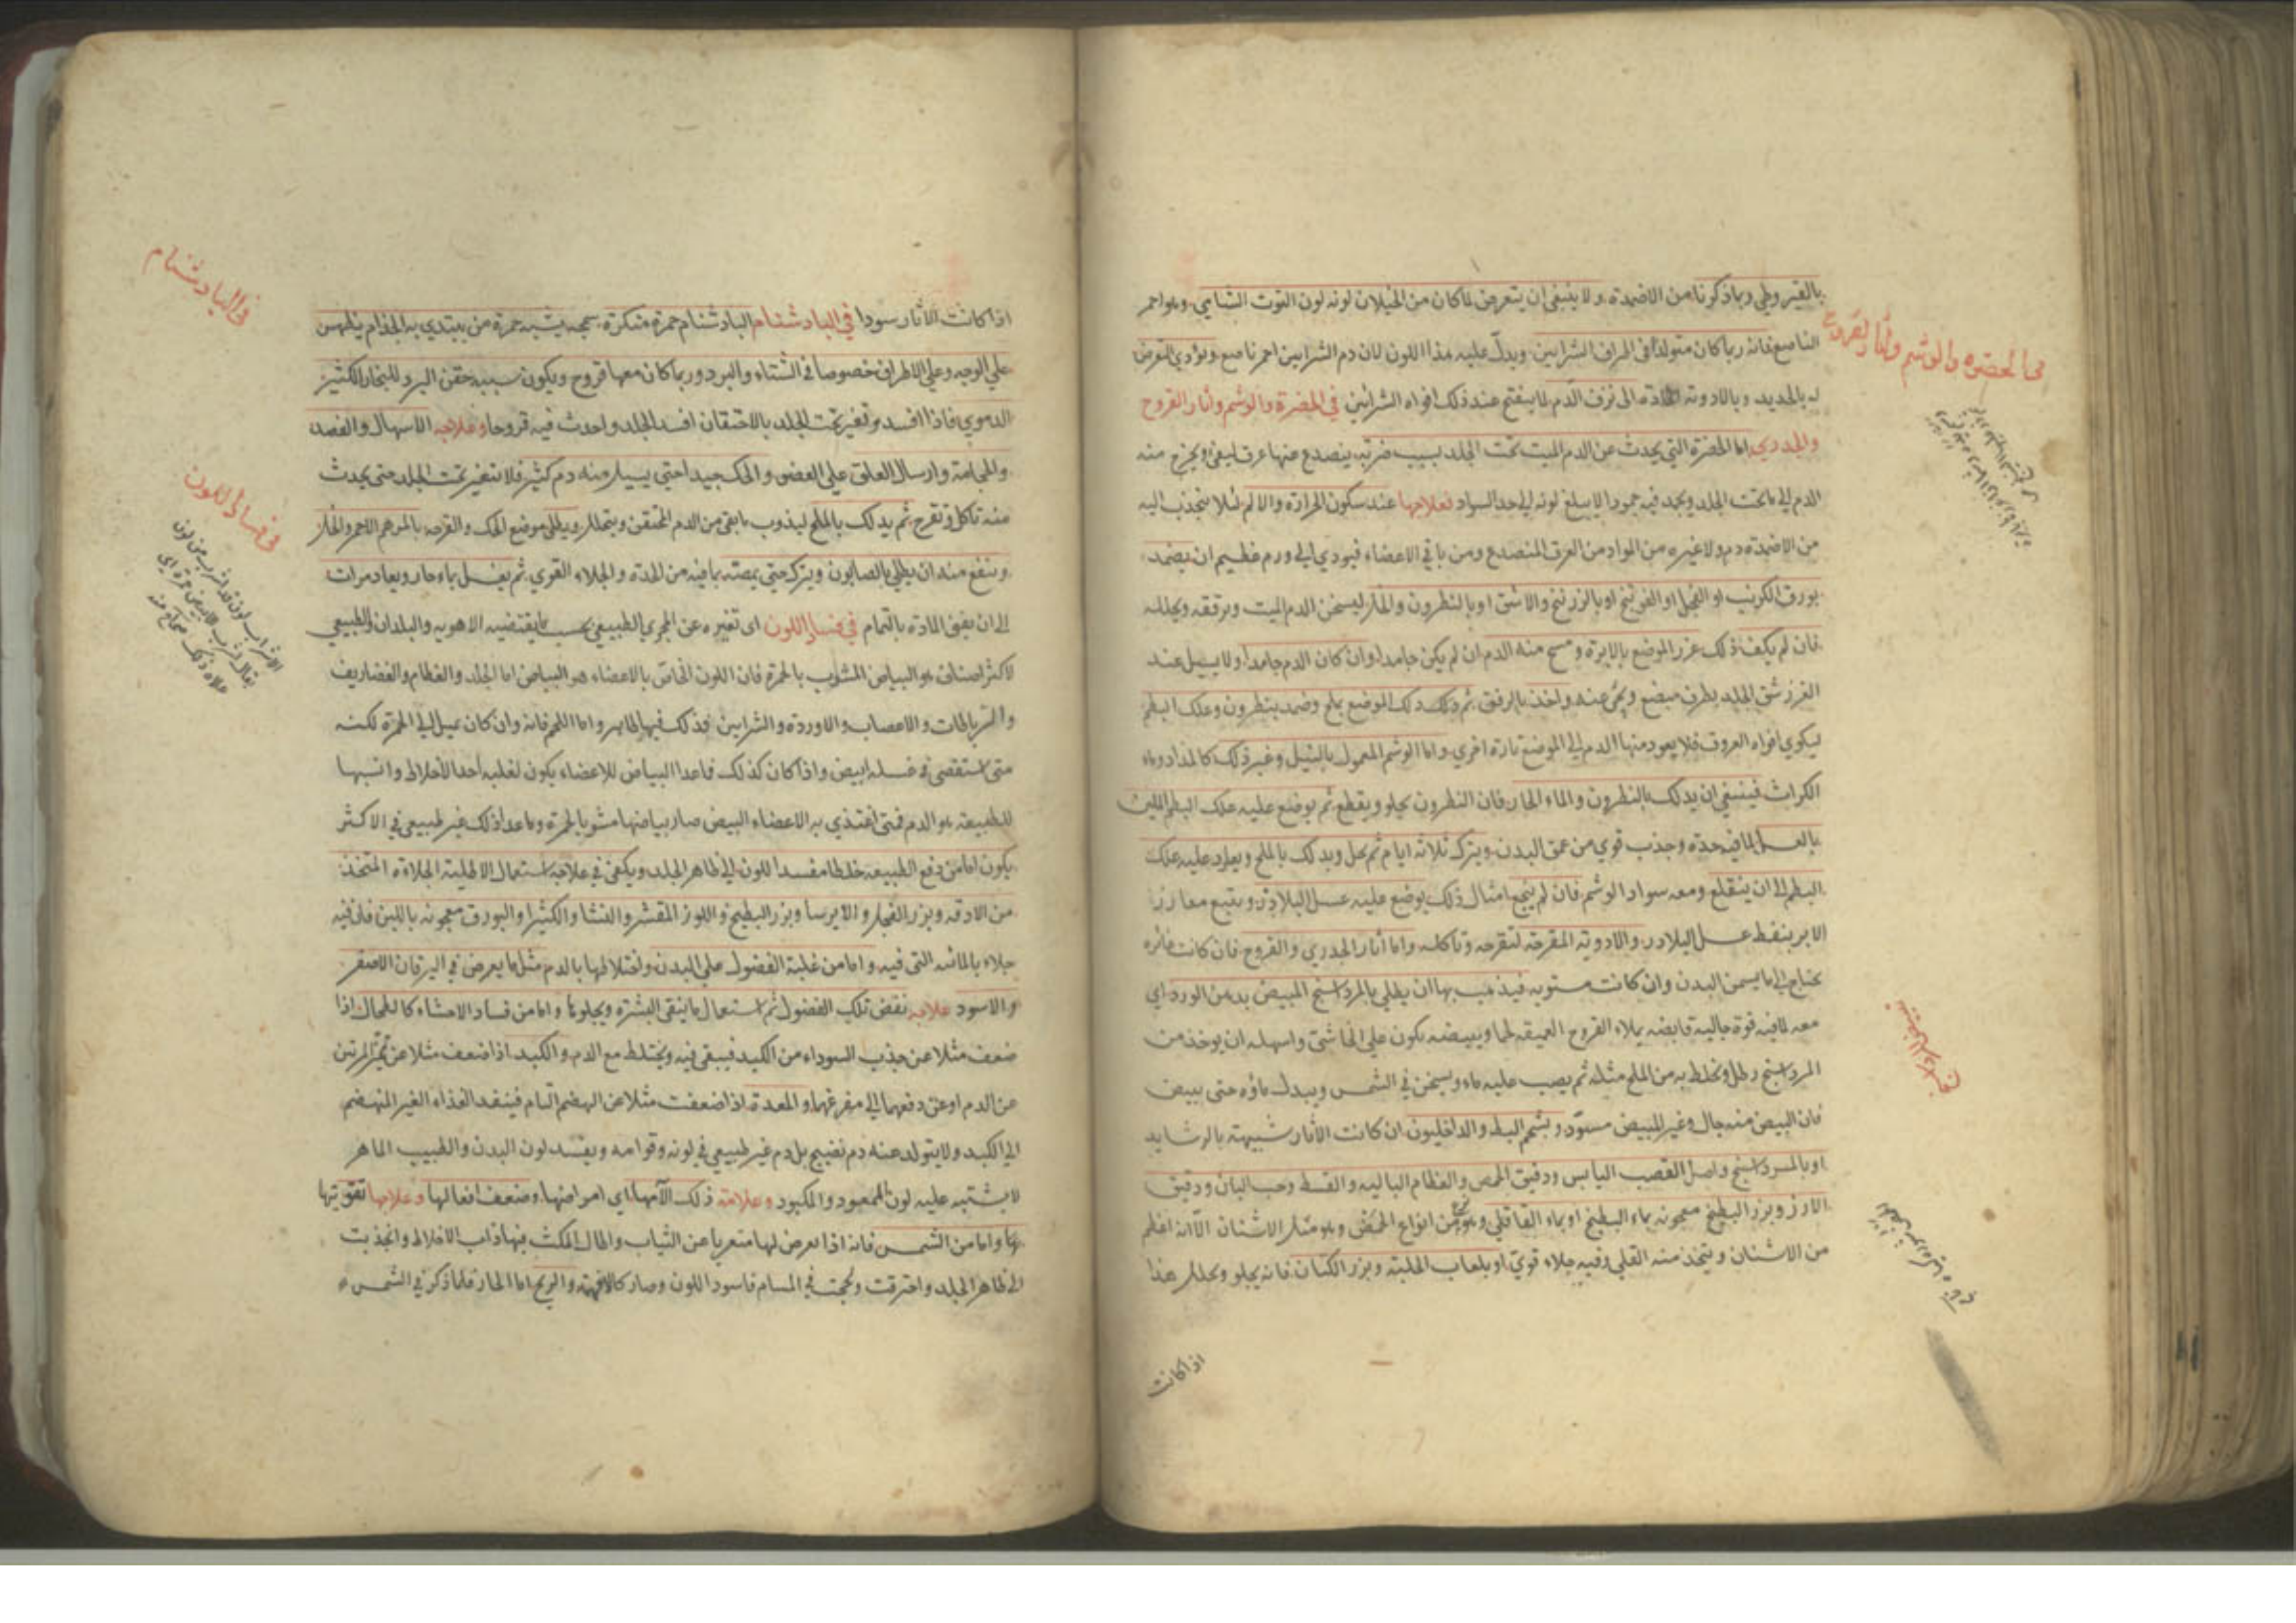 بالقيروطي وبما ذكرنا من الاضمدة ولا ينبغي ان يتعرض لما كان من الخيلان لونه لون التوت الشامي وهو احمر
الناصع فانه ربما كان متولدا في اطراف الشرايين ويدل عليه هذا اللون لان دم الشرايين احمر ناصع ويؤدي التعرض
له بالحديد وبالادوية الحادة الى نزف الدم لما ينفتح عند ذلك افواه الشرايين في الخضرة والوشم واثار القروح
والجدري اما الخضرة التي يحدث عن الدم الميت تحت الجلد بسبب ضربة ينصدع عنها عرق ليفي ويخرج منه
الدم الي ما تحت الجلد ويجمد فيه جمودا لا يبلغ لونه الي حد السواد فعلاجها عند سكون الحرارة والالم لئلا ينجذب اليه
من الاضمدة دم ولا غيره من المواد من العرق المنصدع ومن باقي الاعضاء فيودي الي ورم عظيم ان يضمد
بورق الكرنب او الفجل او الفوتنج او بالزرنيخ والاشق او بالنطرون والخل ليسخن الدم الميت ويرققه ويحلله
فان لم يكف ذلك غرز الموضع بالابرة ومسح منه الدم ان لم يكن جامدا وان كان الدم جامدا ولا يسيل عند
الغرز شق الجلد بطرف مبضع ونحي عنه واخذ بالرفق ثم دلك ذلك الموضع بملح وضمد بنطرون وعلك البطم
ليكوي افواه العروق فلا يعود منها الدم الي الموضع تارة اخري واما الوشم المعمول بالنيل وغير ذلك كالمداد وماء
الكراث فينبغي ان يدلك بالنطرون والماء الحار فان النطرون يجلو ويقطع ثم يوضع عليه علك البطم الملين
بالعسل لما فيه حدة وجذب قوي من عمق البدن ويترك ثلاثة ايام ثم يحل ويدلك بالملح ويعاود عليه علك
البطم الى ان ينقلع ومعه سواد الوشم فان لم ينجع امثال ذلك يوضع عليه عسل البلادر ويتبع مغارز
الابر بنفط عسل البلادر والادوية المقرحة لتقرحه وتاكله واما اثار الجدري والقروح فان كانت غائره
يحتاج الى ما يسمن البدن وان كانت مستوية فيذهب بها ان يطلي بالمرداسنج المبيض بدهن الورد اي
معه لما فيه قوة جالية قابضة يملاء القروح العميقة لحما وتبييضه يكون علي انحا شتي واسهله ان يوخذ من
المرداسنج رطل ويخلط به من الملح مثله ثم يصب عليه ماء ويسخن في الشمس ويبدل ماؤه حتى يبيض
فان المبيض منه جال وغير المبيض مسود وبشحم البط والداخليون ان كانت الاثار شبيهة بالرشايد
او بالمرداسنج واصل القصب اليابس ودقيق الحمص والعظام البالية والقسط وحب البان ودقيق
الارز وبزر البطيخ معجونة بماء البطيخ او بماء القاقلي وهو من انواع الحمض وهو مثل الاشنان الا انه اعظم
من الاشنان ويتخذ منه القلي وفيه جلاء قوي او بلعاب الحلبة وبزر الكتان فانه يجلو ويحلل هذا
اذا كانت
في الخضره والوشم واثار القروح
اذا كانت الاثار سودا في البادشنام البادشنام حمرة منكرة سمجة يشبه حمرة من يبتدي به الجذام يظهر
علي الوجه وعلي الاطراف خصوصا في الشتاء والبرد وربما كان معها قروح ويكون سببه حقن البرد للبخار الكثير
الدموي فاذا افسد وتغير تحت الجلد بالاحتقان افسد الجلد واحدث فيه قروحا وعلاجه الاسهال والفصد
والحجامة وارسال العلق علي العضو والحك جيدا حتي يسيل منه دم كثير فلا تتغير تحت الجلد حتى يحدث
منه تاكل وتقرح ثم يدلك بالملح ليذوب ما بقى من الدم المحتقن ويتحلل ويطلي موضع الحك والقرحه بالمرهم الاحمر والخل
وينفع منه ان يطلي بالصابون ويترك حتى يمصه بما فيه من الحدة والجلاء القوي ثم يغسل بماء حار ويعاد مرات
الى ان يفنى المادة بالتمام في فساد اللون اى تغيره عن المجري الطبيعي بحسب ما يقتضيه الاهوية والبلدان والطبيعي
لاكثر اصنافه هو البياض المشوب بالحمرة فان اللون الخاص بالاعضاء هو البياض اما الجلد والعظام والغضاريف
والرباطات والاعصاب والاوردة والشرايين فذلك فيها ظاهر واما اللحم فانه وان كان يميل الي الحمرة لكنه
متى استقصى في غسله ابيض واذا كان كذلك فما عدا البياض للاعضاء يكون لغلبة احد الاخلاط وانسبها
للطبيعة هو الدم فمتى اغتذي به الاعضاء البيض صار بياضها مشوبا بالحمرة وما عدا ذلك غير طبيعي في الاكثر
يكون اما من دفع الطبيعة خلطا مفسدا للون الي ظاهر الجلد ويكفي في علاجه استعمال الاطلية الجلاءة المتخذ
من الادقه وبزر الفجل والايرسا وبزر البطيخ واللوز المقشر والنشا والكثيرا والبورق معجونه باللبن فان فيه
جلاء بالمائية التى فيه واما من غلبة الفضول علي البدن واختلاطها بالدم مثل ما يعرض في اليرقان الاصفر
والاسود علاجه نفض تلك الفضول ثم استعمال ما ينقى البشرة ويجلوها واما من فساد الاحشاء كالطحال اذا
ضعف مثلا عن جذب السوداء من الكبد فيبقى فيه ويختلط مع الدم والكبد اذا ضعف مثلا عن تميز المرتين
عن الدم او عن دفعهما الي مفرغهما والمعدة اذا ضعفت مثلا عن الهضم التام فينفذ الغذاء الغير المنهضم
الي الكبد ولا يتولد عنه دم نضيج بل دم غير طبيعي في لونه وقوامه ويفسد لون البدن والطبيب الماهر
لا يشتبه عليه لون الممعود والمكبود وعلامته ذلك الآمها اي امراضها وضعف افعالها وعلاجها تقويتها
واما من الشمس فانه اذا تعرض لها متعريا عن الثياب واطال المكث فيها ذاب الاخلاط وانجذبت
الى ظاهر الجلد واحترقت ولحجت في المسام فاسود اللون وصار كالافهة والريح اما الحار فلما ذكر في الشمس
في البادشنام
في فساد اللون